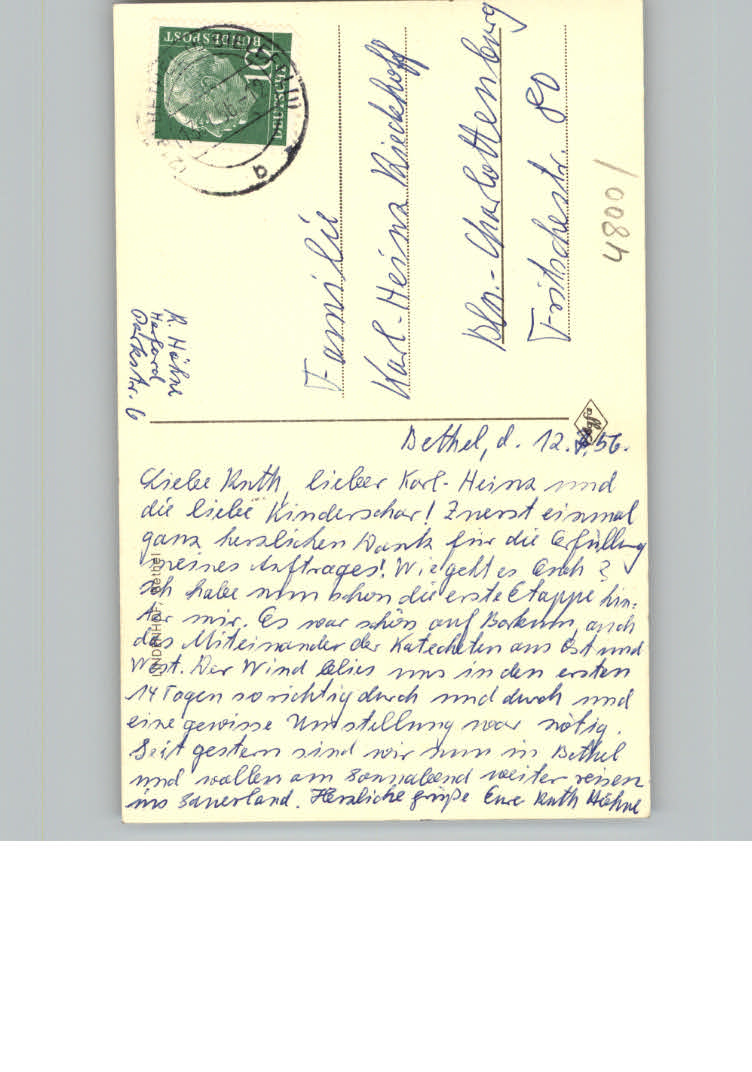 DEUTSCHE
BUNDESPOST
10
R. Höhne
Herford
Parkstr. 6
Familie
Karl-Heinz Rieckhoff
Bln.-Charlottenburg
Fritschestr. 80
4800/
Agfa
LINDENHOF, Bethel
Bethel, d. 12. .56.
Liebe Ruth, lieber Karl-Heinz und
die liebe Kinderschar! Zuerst einmal
ganz herzlichen Dank für die Erfüllung
meines Auftrages! Wie geht es Euch?
Ich habe nun schon die erste Etappe hin-
ter mir. Es war schön auf Borkum, auch
das Miteinander der Katecheten aus Ost und
West. Der Wind blies uns in den ersten
14 Tagen so richtig durch und durch und
eine gewisse Umstellung war nötig.
Seit gestern sind wir nun in Bethel
und wollen am Sonnabend weiter reisen
ins Sauerland. Herzliche Grüße Eure Ruth Höhne